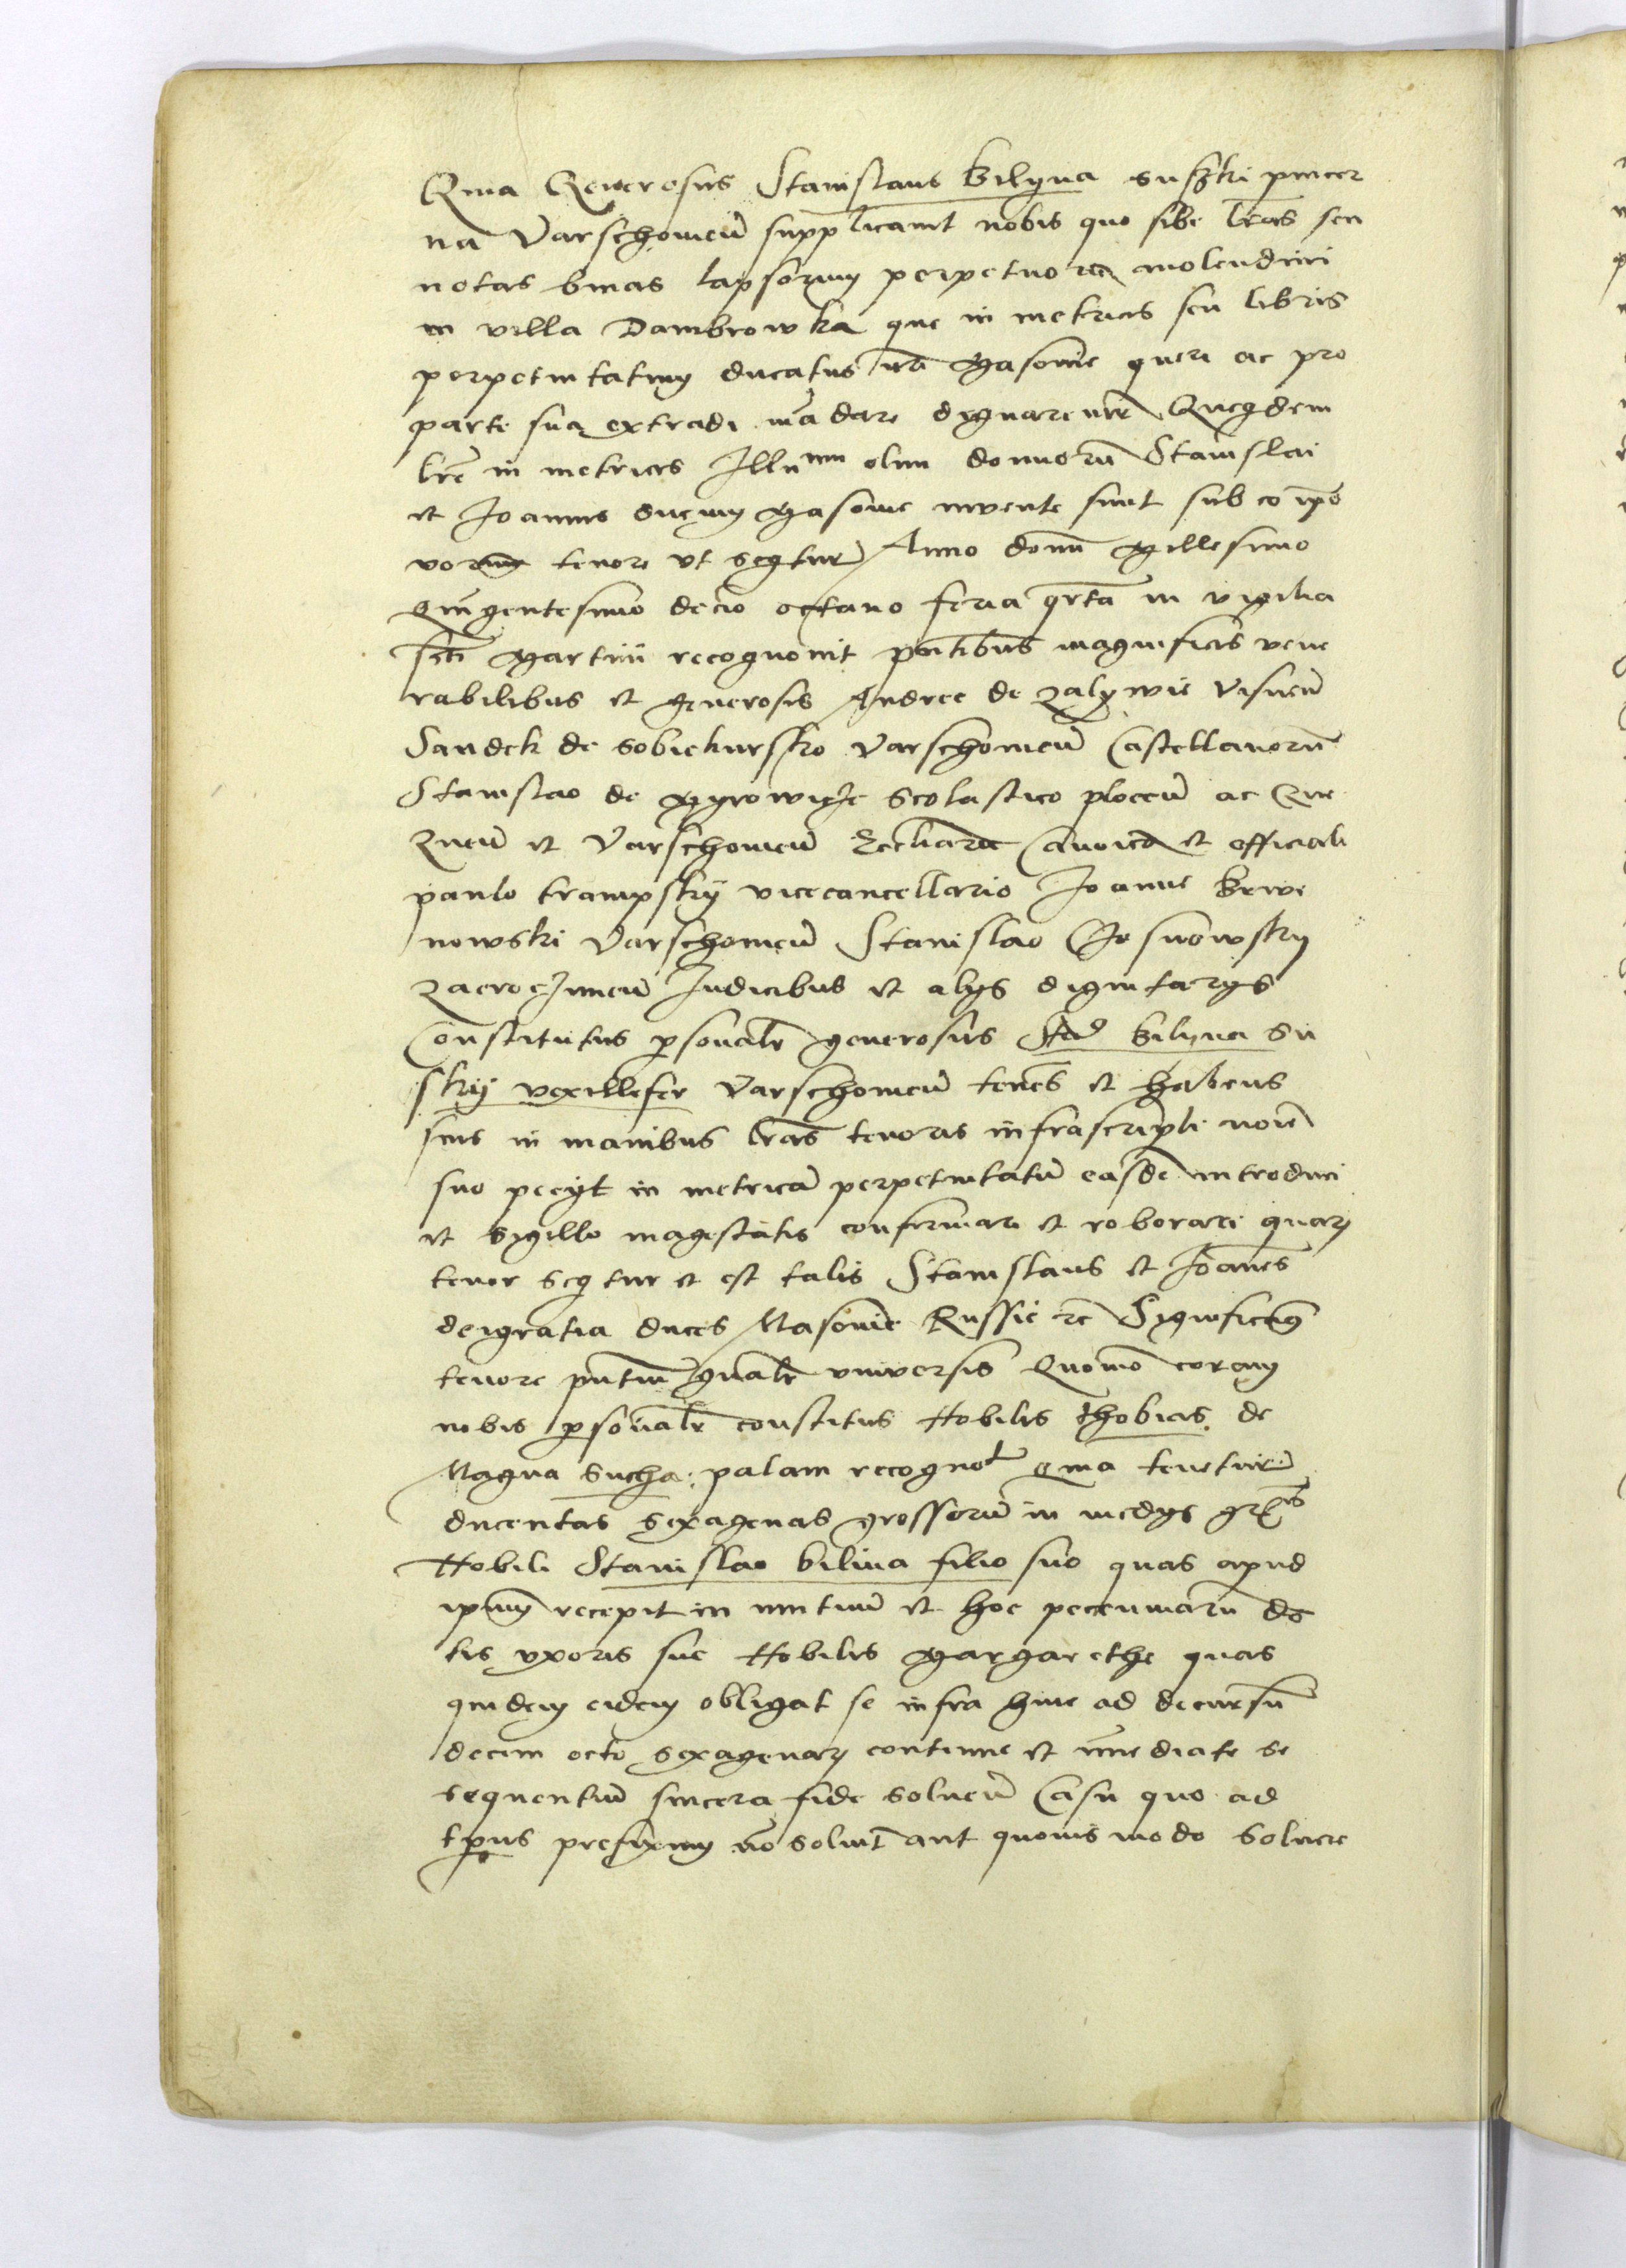 Quia Generosus Stanislaus Bilyna Suski pincer
na Varschovien̄ supplicavit nobis quo sibi lras seu
notas binas lapsorum perpetuorum molendini
in villa Dambrowka que in metricis seu libris
perpetuitatum ducatus nrī Masovie queri ac pro
parte sua extradi mādare dignaremur Queqdem
lrē in metricis Illūmm olim dominorū Stanislai
et Joannis ducum Masovie invente sunt sub eo
tenore ut seqtur Anno domī Millesimo
Quīgentesimo decīo octavo feria qrta in vigilia
scti Martini recognovit pn̄tibus magnificis vene
rabilibus et generosis Andree de Zalywie Visnen̄
Sandek de Sobiekursko Varschovien̄ Castellanorū
Stanislao de Myrowicze Scolastico plocen̄ ac Gne
znen̄ et Varschovien̄ Ecctiarū Canoico et officiali
paulo krampskij vicecancellario Joanne Brwi
nowski Varschovien̄ Stanislao Cosnowsky
Zacroczimen̄ Judicibus et alys dignitarys
Constitutus psonalr generosus Stās Bilyna Su
skij vexillifer Varschovien̄ tenēs et habens
suis in manibus lrās tenoris infrascripti noīe
suo pecyt in metricā perpetuitatū easdē introduci
et sygillo magestatis confirmari et roborari quarū
tenor seqtur et est talis Stanislaus et Joānes
dei gratia duces Masovie Russie rc Significamꝰ
tenore pn̄tiū gnalr universis Quomō coram
nobis psonalr constitus Nobilis Thobias de
Magna Sucha palam recognot quia tenetur
ducentas sexagenas grossorū in medys grēs
Nobili Stanislao bilina filio suo quas apud
ipsum recepit in mutuū et hoc peccuniarū do
tis uxoris sue Nobilis Margarethe quas
quidem eidem obligat se infra hinc ad decursū
decem octo sexagenarū continue et īmediate se
sequentiū sincera fide solvere Casu quo ad
tpus prefixum nō solvit aut quovis modo solvere